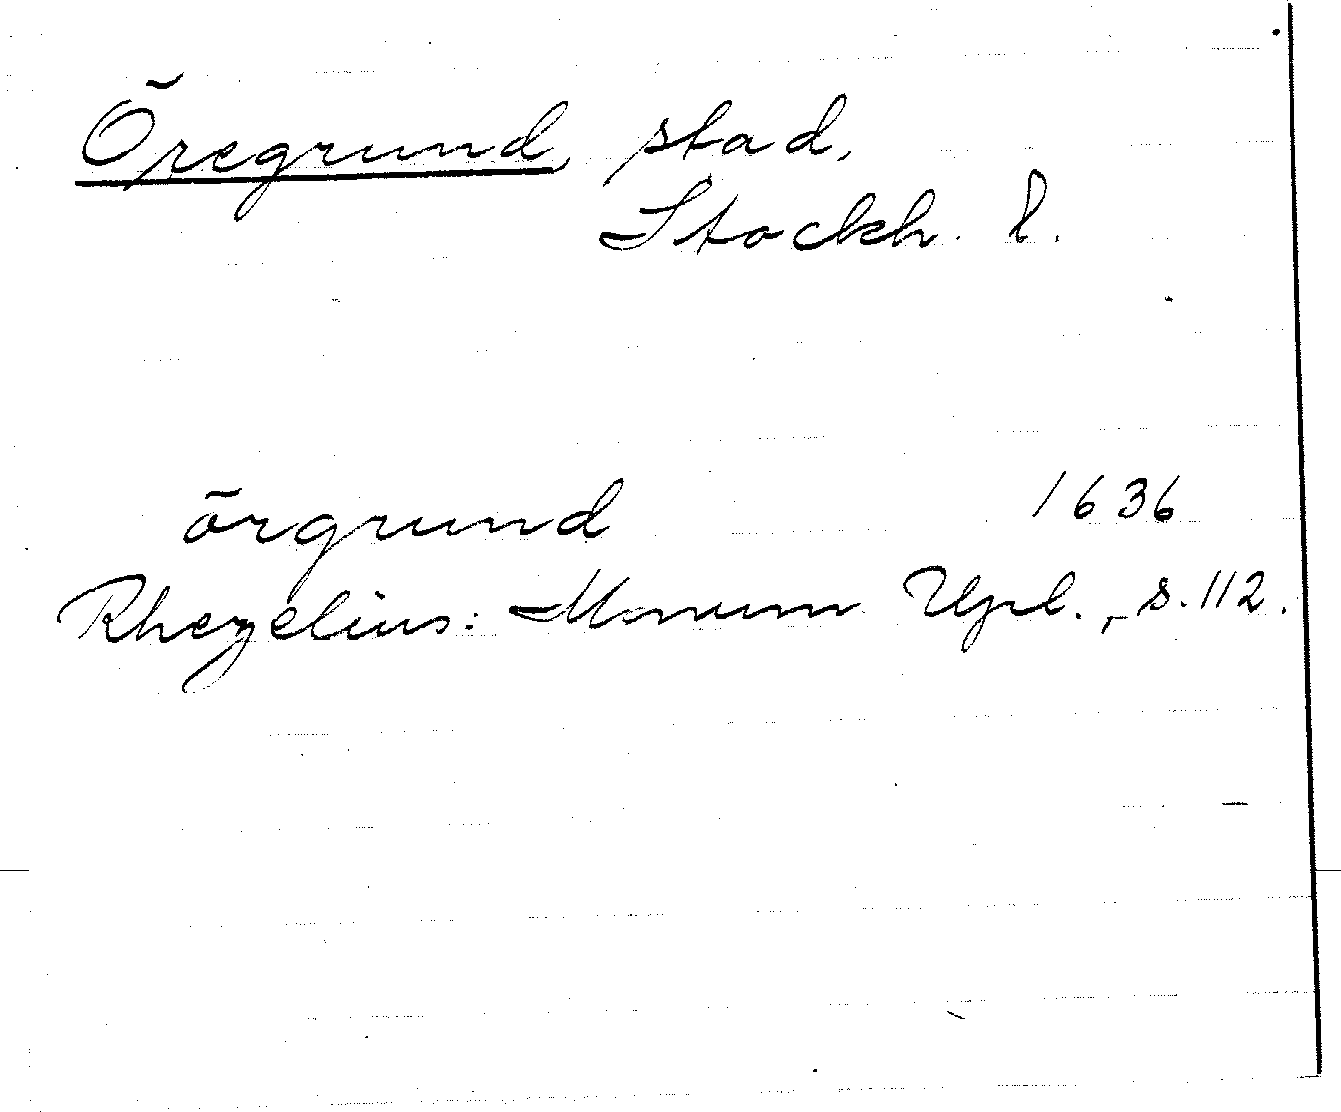 Öregrund, stad,
Stockh. l.
örgrund 1636
Rhezelius: Monum Upl., s. 112.